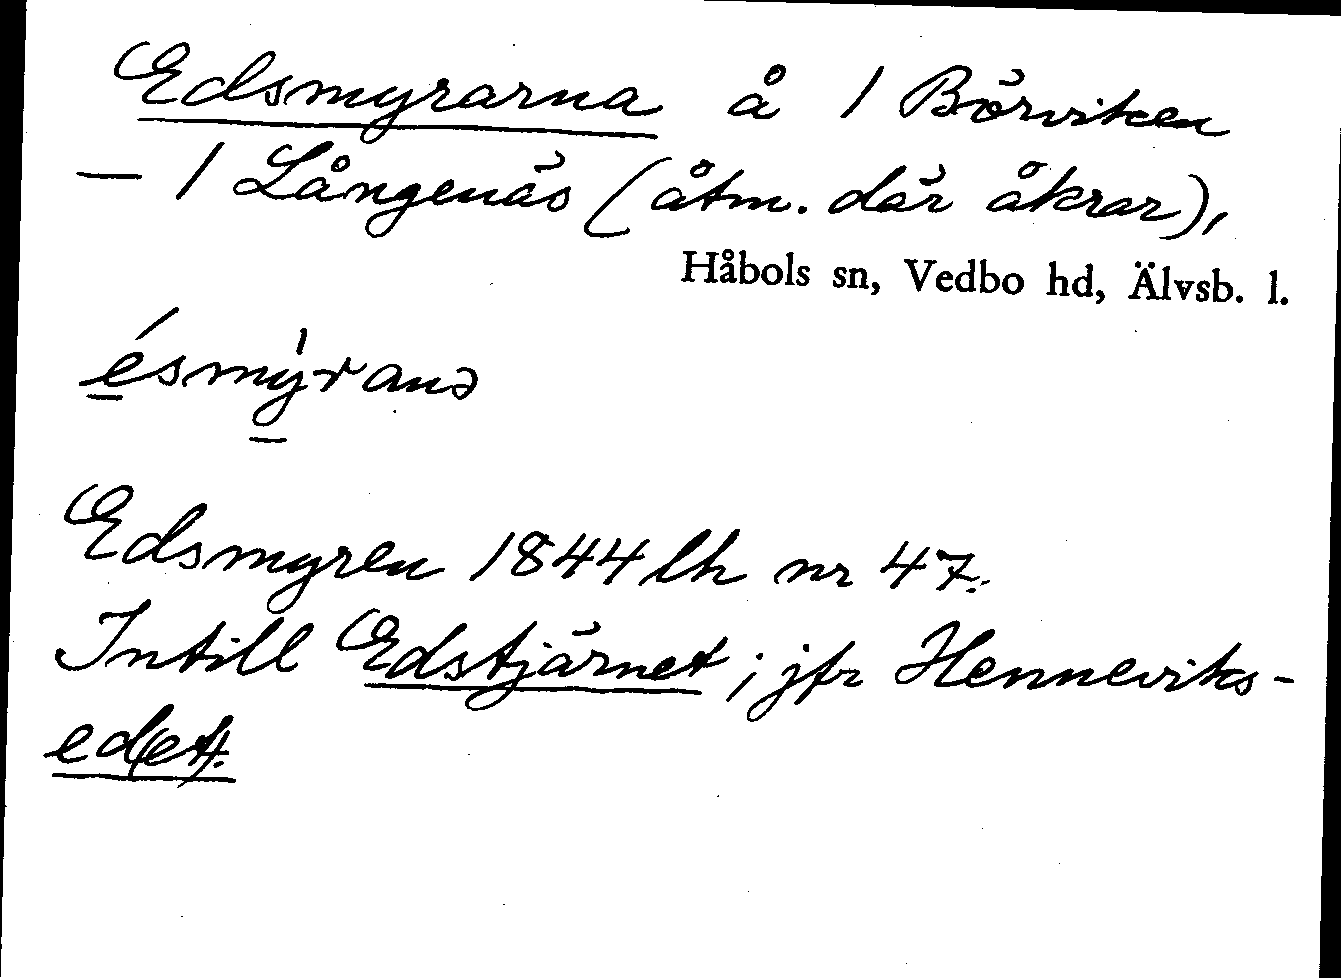 Edsmyrarna å 1 Börviken
— 1 Långenäs (åtm. där åkrar),
Håbols sn, Vedbo hd, Älvsb. l.
ésmy̍ranə
Edsmyren 1844 lh nr 47.
Intill Edstjärnet; jfr Henneviks-
ed(et).